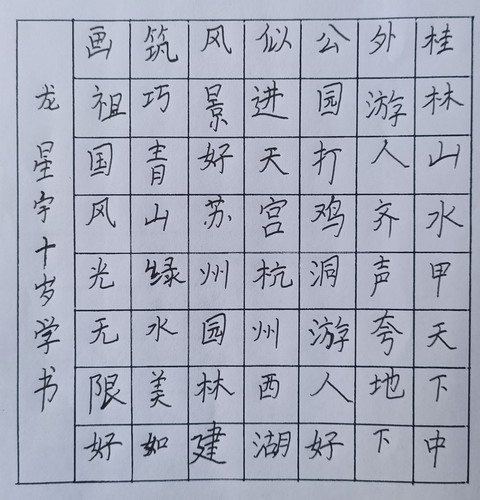 桂林山水甲天下中
外游人齐声夸地下
公园打鸡洞游人好
似进天宫杭州西湖
风景好苏州园林建
筑巧青山绿水美如
画祖国风光无限好
龙星宇十岁学书